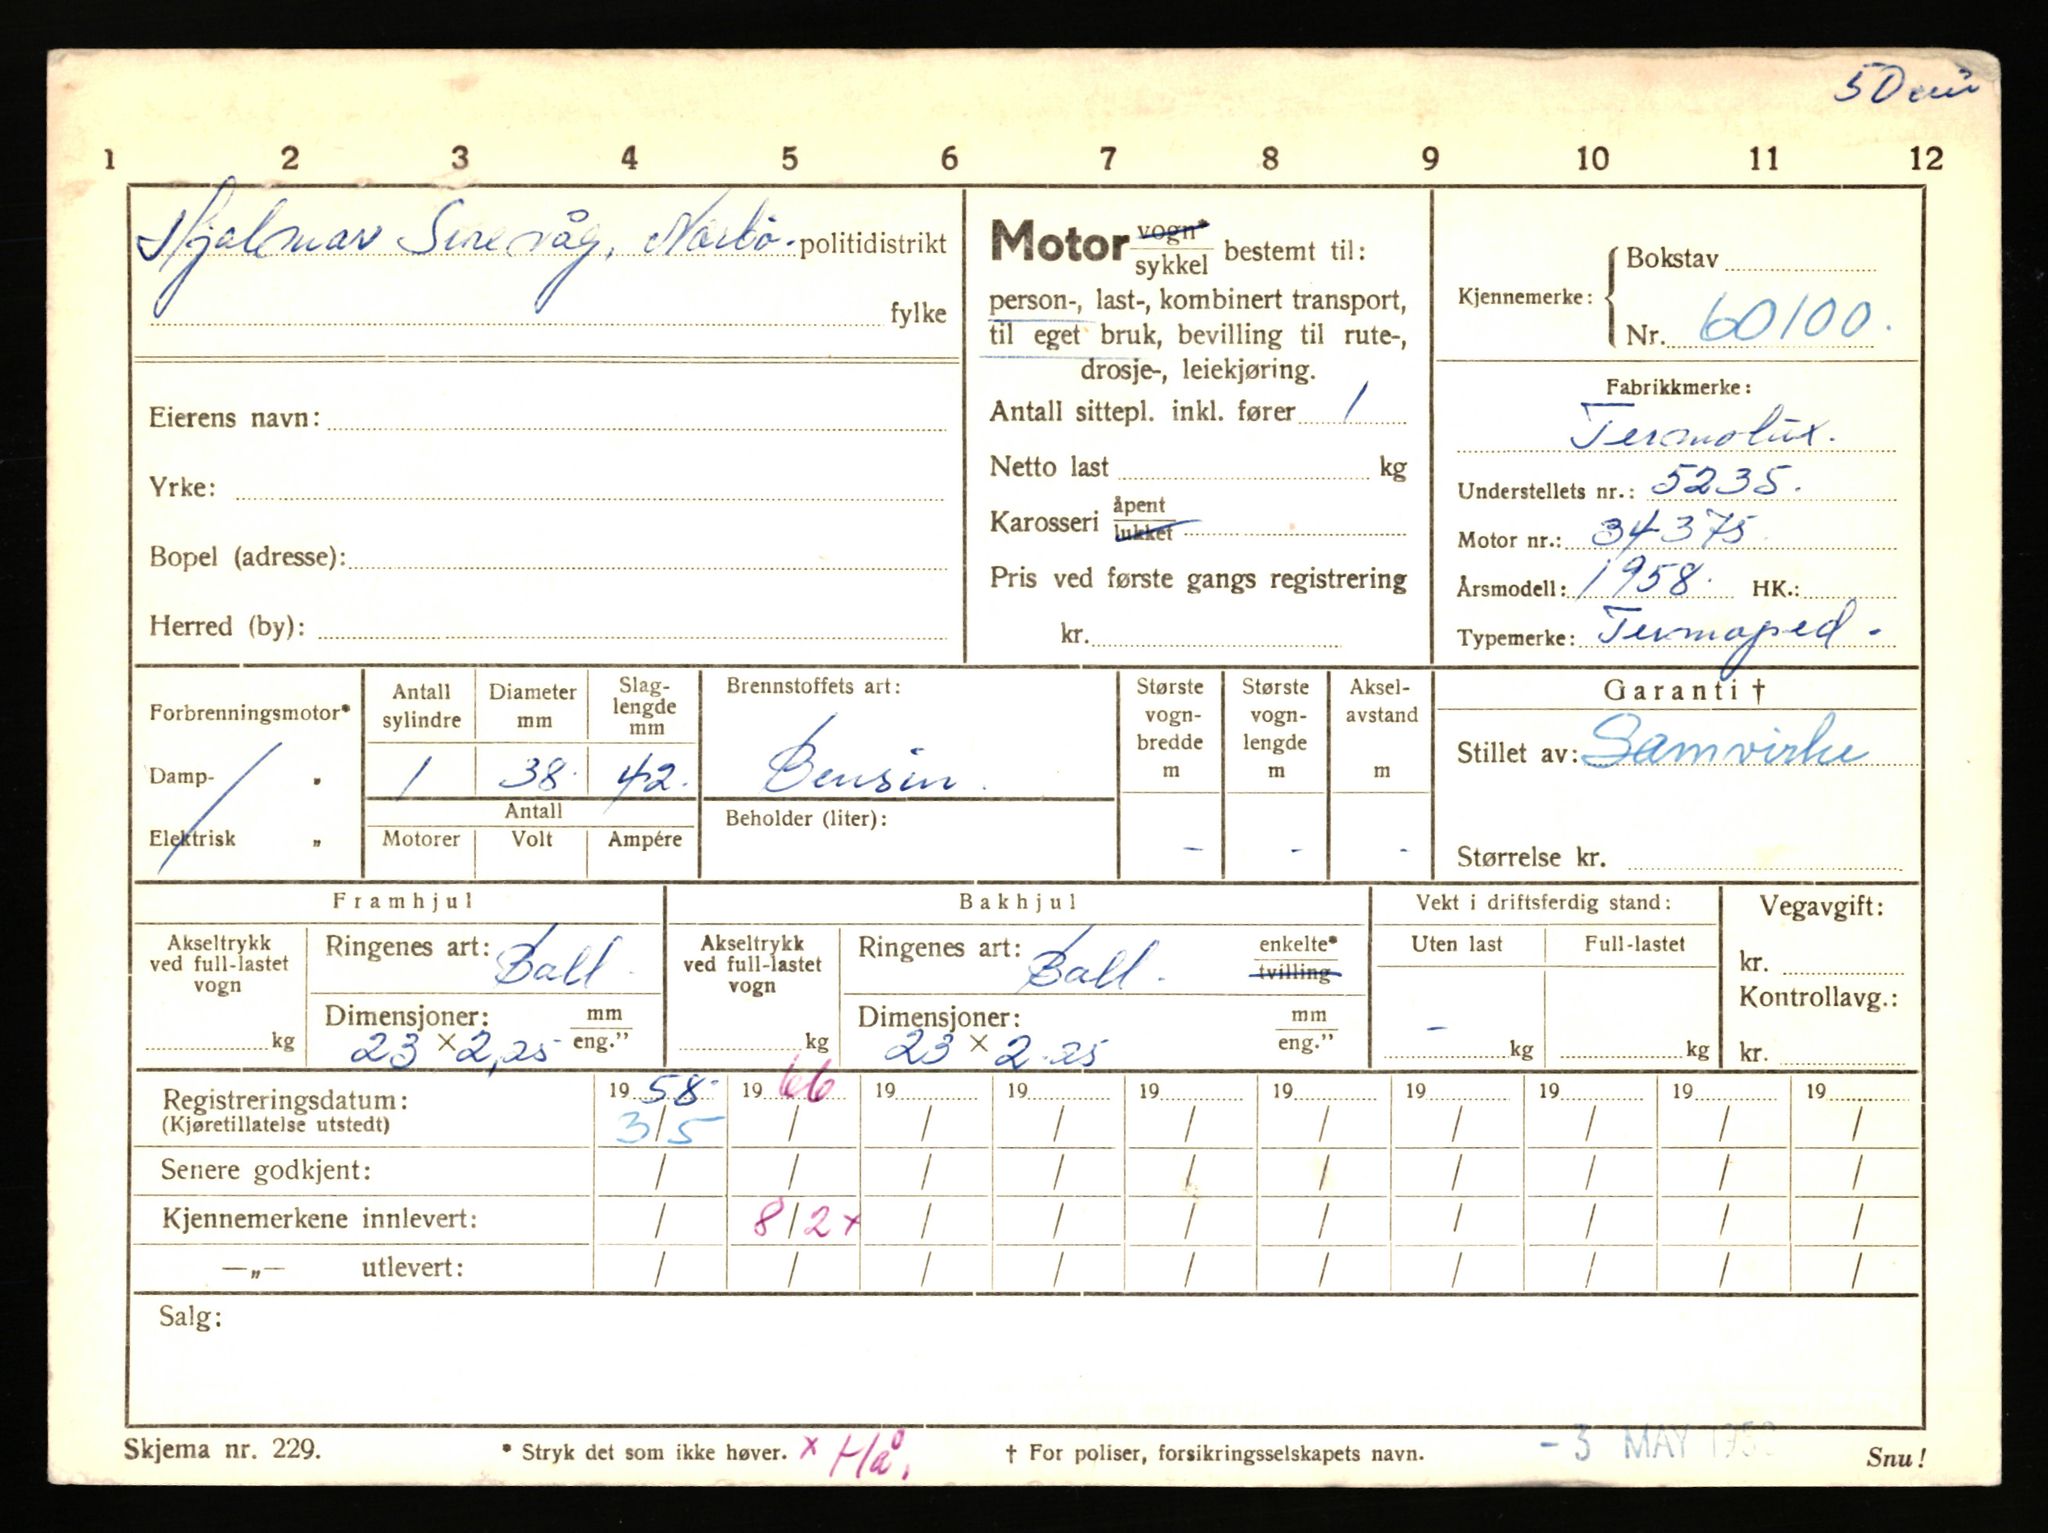 50 cm³
1 2 3 4 5 6 7 8 9 10 11 12
Hjalmar Sirevåg, Nærbø. politidistrikt
fylke
Eierens navn:
Yrke:
Bopel (adresse):
Herred (by):
Motor vogn* sykkel bestemt til:
person-, last-, kombinert transport,
til eget bruk, bevilling til rute-,
drosje-, leiekjøring.
Antall sittepl. inkl. fører 1
Netto last kg
Karosseri åpent lukket
Pris ved første gangs registrering
kr.
Kjennemerke: Bokstav
Nr. 60100.
Fabrikkmerke:
Termolux.
Understellets nr.: 5235.
Motor nr.: 34375
Årsmodell: 1958. HK.:
Typemerke: Termoped.
Forbrenningsmotor*
Damp- "
Elektrisk "
Antall sylindre
1
Diameter mm
38.
Slag-
lengde
mm
42.
Antall
Motorer Volt Ampére
Brennstoffets art:
Bensin.
Beholder (liter):
Største
vogn-
bredde
m
-
Største
vogn-
lengde
m
-
Aksel-
avstand
m
-
Garanti †
Stillet av: Samvirke
Størrelse kr.
Framhjul
Akseltrykk
ved full-lastet
vogn
kg
Ringenes art: Ball.
Dimensjoner: mm
23 × 2,25 eng."
Bakhjul
Akseltrykk
ved full-lastet
vogn
kg
Ringenes art: Ball. enkelte* tvilling
Dimensjoner: mm
23 × 2.25 eng."
Vekt i driftsferdig stand:
Uten last Full-lastet
-
kg kg
Vegavgift:
kr.
Kontrollavg.:
kr.
Registreringsdatum: 19 58. 19 66 19 19 19 19 19 19 19 19
(Kjøretillatelse utstedt) 3/5 / / / / / / / / /
Senere godkjent: / / / / / / / / / /
Kjennemerkene innlevert: / 8/2 x / / / / / / / /
—„— utlevert: / / / / / / / / / /
Salg:
Skjema nr. 229. * Stryk det som ikke høver. x Hå. † For poliser, forsikringsselskapets navn. -3 MAY 1958 Snu!